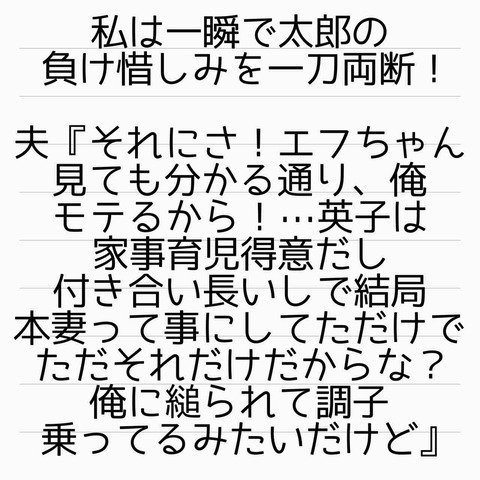 私は一瞬で太郎の
負け惜しみを一刀両断！
夫『それにさ！エフちゃん
見ても分かる通り、俺
モテるから！…英子は
家事育児得意だし
付き合い長いしで結局
本妻って事にしてただけで
ただそれだけだからな？
俺に縋られて調子
乗ってるみたいだけど』